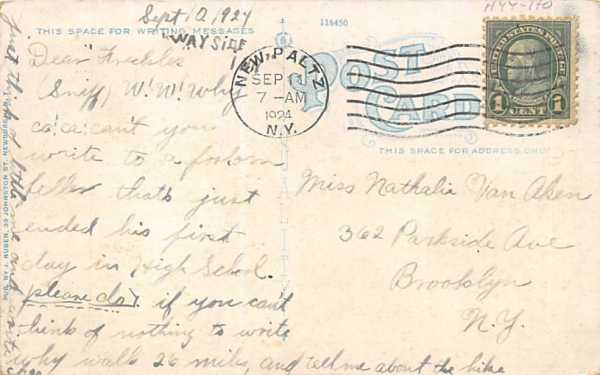 Sept 10, 1924
116450
H44-110
THIS SPACE FOR WRITING MESSAGES
"WAYSIDE
Dear "Freckles"
Sniff! W! W! Why
ca! ca! can't you
write to a
feller that's just
ended his first
day in High School.
please do! if you can't
think of nothing to write
why walk 26 miles, and tell me about the hike
Just think of
NEW PALTZ
SEP 11
7-AM
1924
N.Y.
POST
CARD
UNITED STATES POSTAGE
1 CENT 1
THIS SPACE FOR ADDRESS ONLY
Miss Nathalie Van Aken
362 Parkside Ave
Brooklyn
N.Y.
PUB. BY J. RUBEN, 30 JOHNSTON ST. NEWBURGH